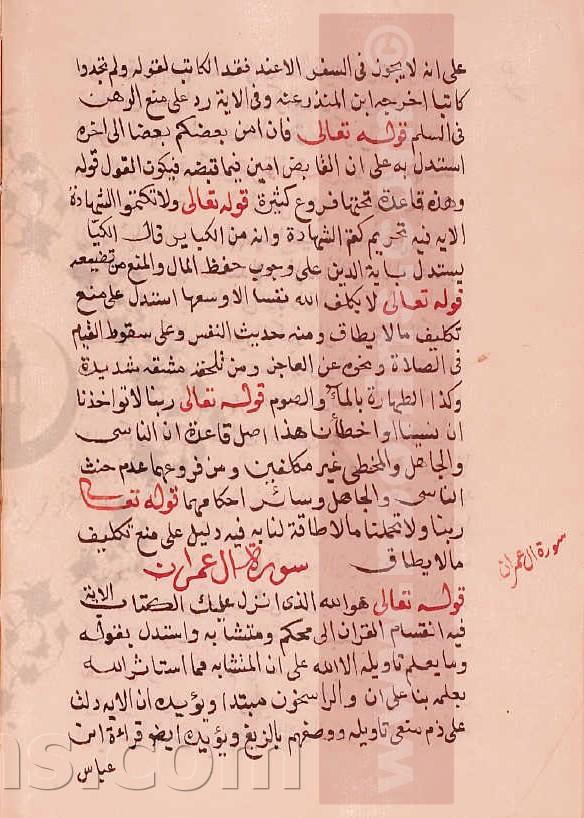 على انه لا يجوز في السفر الا عند فقد الكاتب لقوله ولم تجدوا
كاتبا اخرجه ابن المنذر عنه وفي الاية رد على منع الرهن
في السلم قوله تعالى فان امن بعضكم بعضا الى اخره
استدل به على ان القابض امين فيما قبضه فيكون القول قوله
وهذه قاعدة تحتها فروع كثيرة قوله تعالى ولا تكتموا الشهادة
الايه فيه تحريم كتم الشهادة وانه من الكباير قال الكيا
يستدل بباية الدين على وجوب حفظ المال والمنع من تضييعه
قوله تعالى لا يكلف الله نفسا الا وسعها استدل على منع
تكليف ما لا يطاق ومنه حديث النفس وعلى سقوط القيام
في الصلاة ونحوه عن العاجز ومن تلحقه مشقه شديدة
وكذا الطهارة بالماء والصوم قوله تعالى ربنا لا تواخذنا
ان نسينا او اخطأنا هذا اصل قاعدة ان الناسي
والجاهل والمخطي غير مكلفين ومن فروعها عدم حنث
الناسي والجاهل وسائر احكامهما قوله تعالى
ربنا ولا تحملنا ما لا طاقة لنا به فيه دليل على منع تكليف
ما لا يطاق سورة ال عمران
سورة ال عمران
قوله تعالى هو الله الذي انزل عليك الكتاب الاية
فيه انقسام القران الى محكم ومتشابه واستدل بقوله
وما يعلم تاويله الا الله على ان المتشابه مما استاثر الله
بعلمه بنا على ان والراسخون مبتدا ويؤيده ان الايه دلت
على ذم متبعي تاويله ووصفهم بالزيغ ويؤيده ايضا قراءة ابن
عباس
ns.com